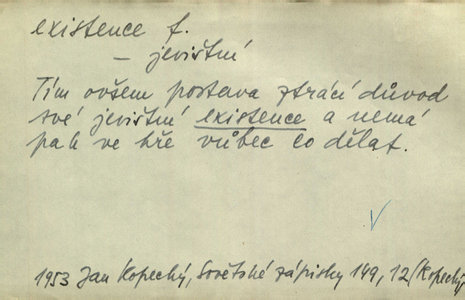 existence f.
– jevištní
Tím ovšem postava ztrácí důvod
své jevištní existence a nemá
pak ve hře vůbec co dělat.
1953 Jan Kopecký, Sovětské zápisky 149, 12/Kopecký